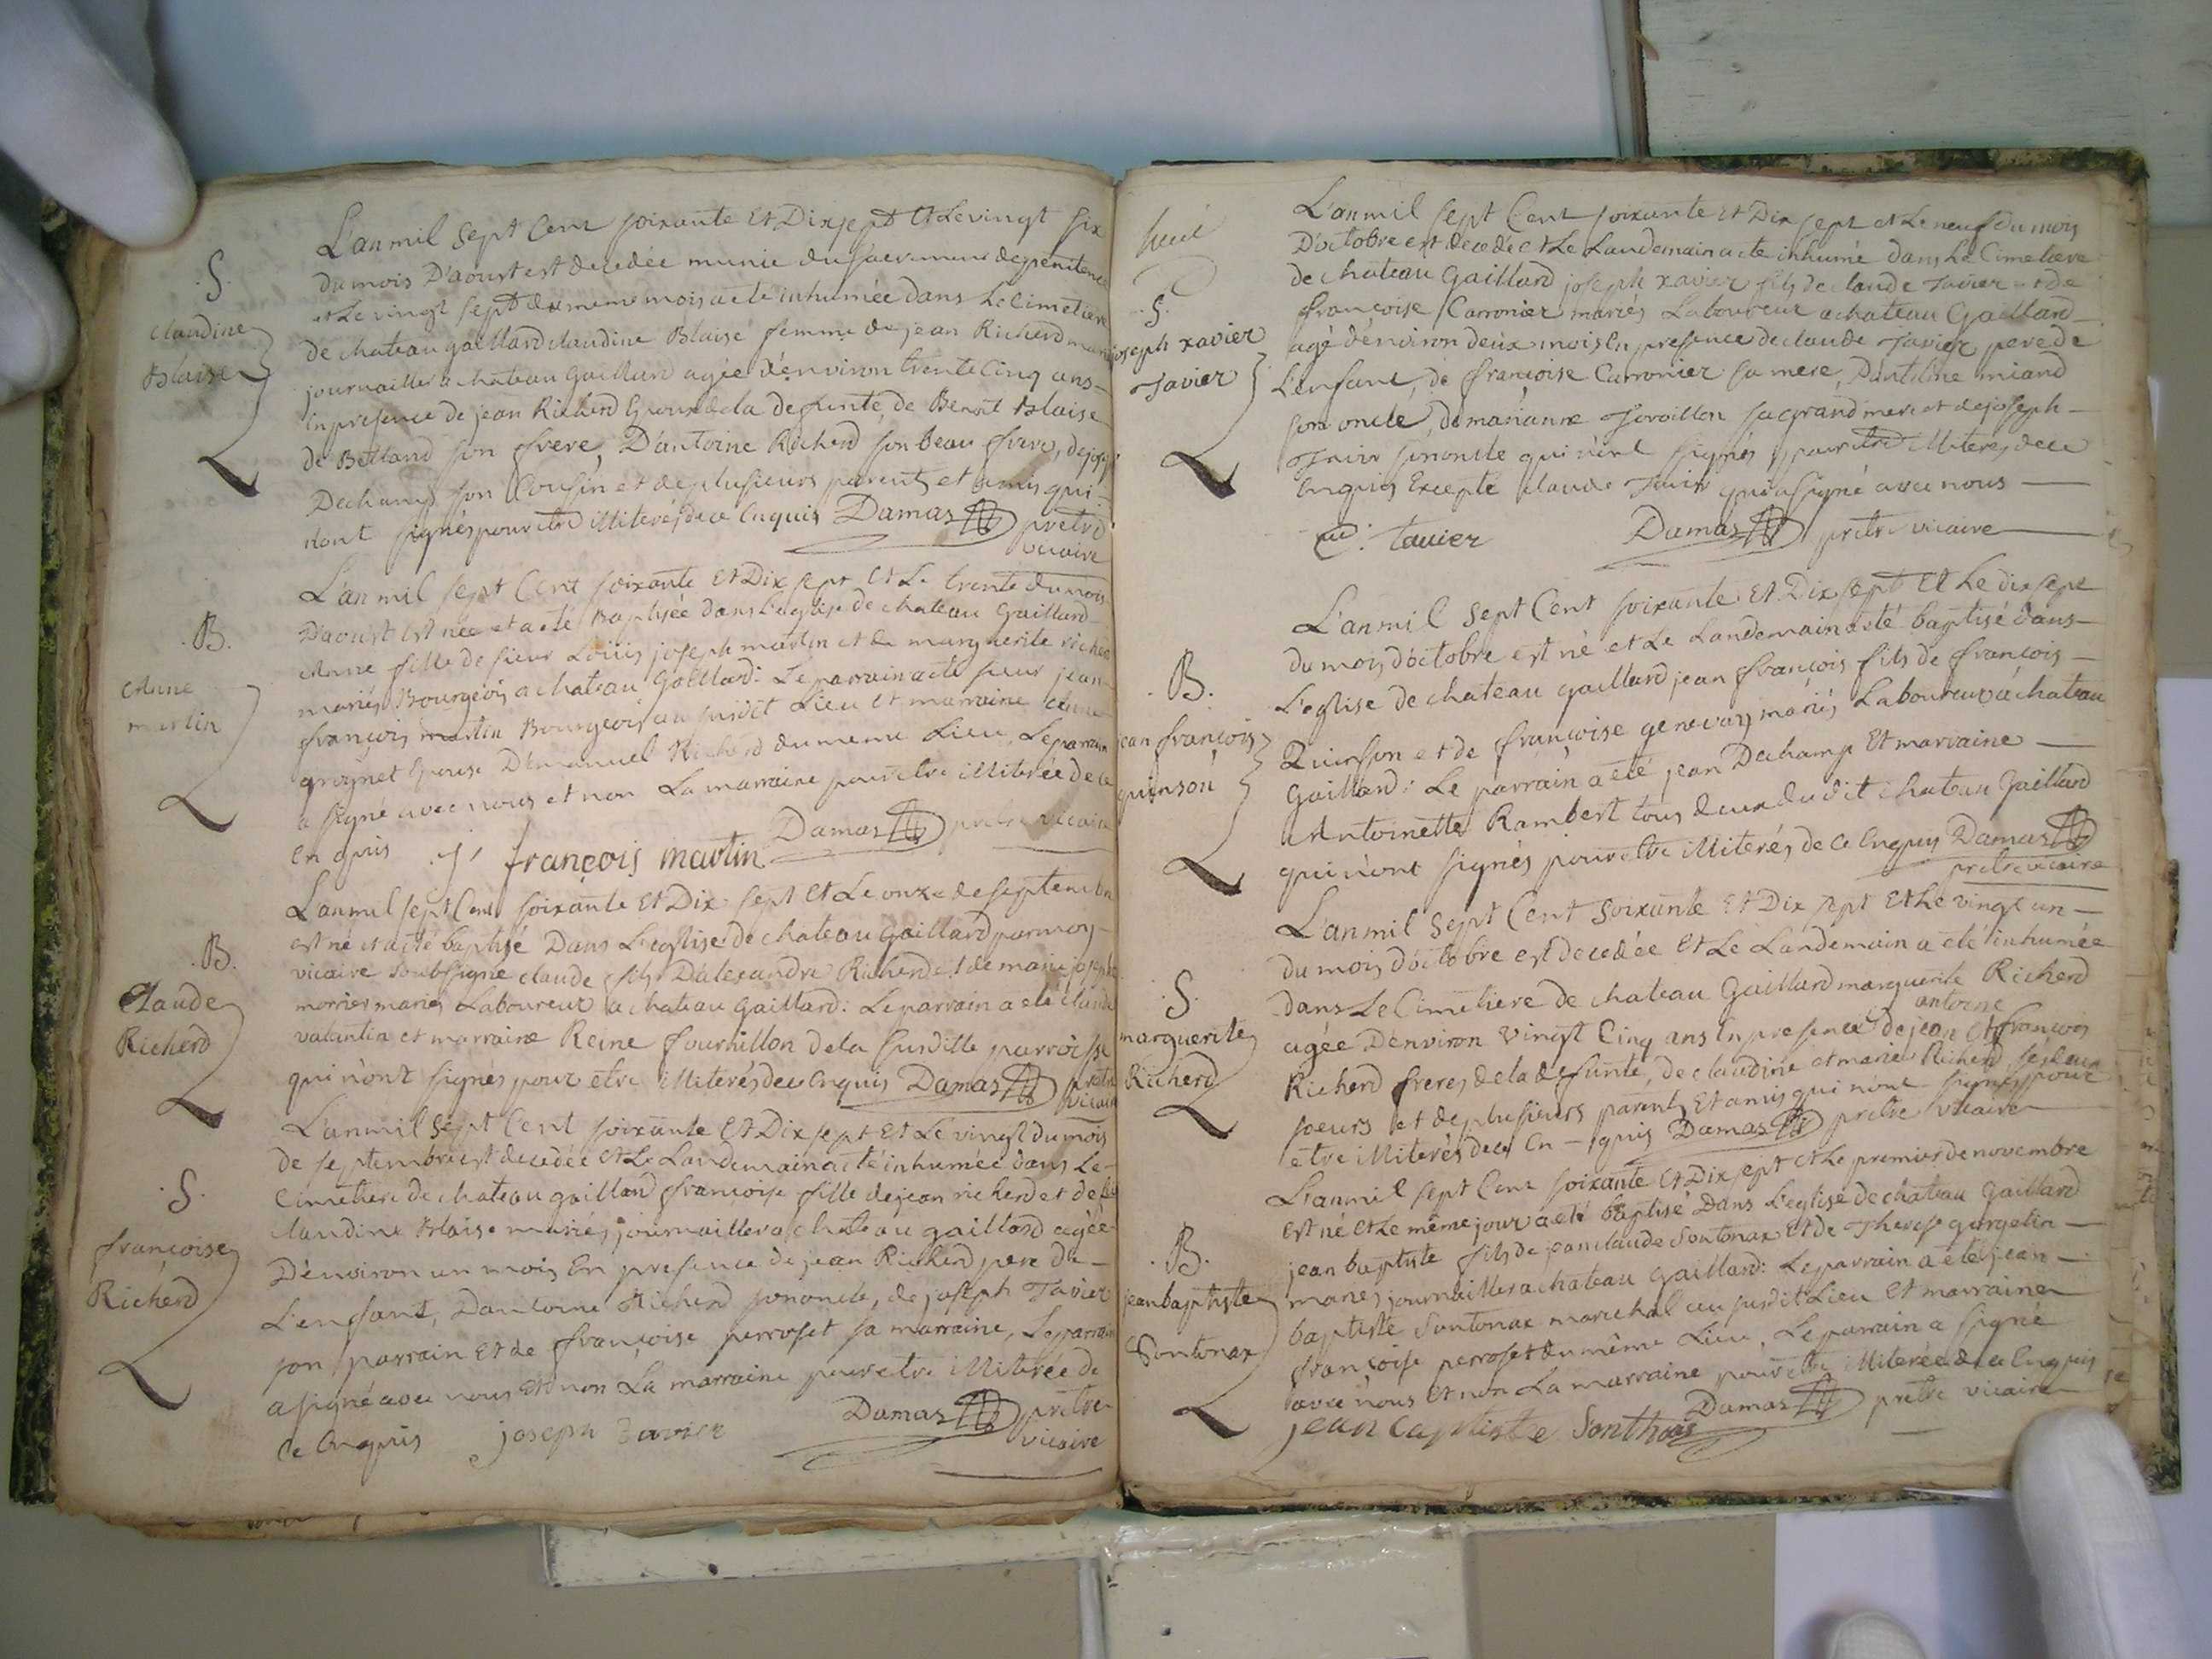 .S.
claudine
Blaise
L'an mil sept Cent soixante Et Dix sept Et Le vingt six
du mois D'aoust est decedée munie du sacrement de penitence
et Le vingt sept du meme mois a eté inhumée dans Le Cimetiere
de chateau gaillard claudine Blaise femme de jean Richerd
journaillier a chateau Gaillard agée d'environ trente Cinq ans
En presence de jean Richerd Epoux de la defunte, de Benoit Blaise
de Bettand son frere, D'antoine Richerd son beau frere, de joseph
Dechamp son Cousin et de plusieurs parents et amis qui
n'ont signés pour etre illiterés de ce Enquis Damas prêtre
vicaire
.B.
Anne
martin
L'an mil sept Cent soixante Et Dix sept Et Le trente du mois
D'aoust est née et a eté Baptisée dans L'eglise de chateau Gaillard
Anne fille de sieur Loüis joseph martin et de marguerite richerd
mariés Bourgeois a chateau Gaillard: Le parrain a eté sieur jean
françois martin Bourgeois au susdit Lieu et marraine Anne
groignet Epouse D'Emanuel Richerd du meme Lieu, Le parrain
a signé avec nous et non La marraine pour etre illiterée de ce
En quis j françois martin Damas prêtre vicaire
.B.
Claude
Richerd
L'an mil sept Cent soixante Et Dix sept Et Le onze de septembre
est né et a eté baptisé Dans L'eglise de chateau Gaillard par moy
vicaire soubsigné claude fils D'alexandre Richerd et de marie joseph
morrier mariés Laboureur a chateau Gaillard: Le parrain a eté claude
valantin et marraine Reine fournillon de la susditte parroisse
qui n'ont signés pour etre illiterés de ce Enquis Damas prêtre
vicaire
.S.
françoise
Richerd
L'an mil sept Cent soixante Et Dix sept Et Le vingt du mois
de septembre est decedée et Le Landemain a eté inhumée dans Le
Cimetiere de chateau gaillard françoise fille de jean richerd et de
claudine Blaise mariés journaillier a chateau gaillard agée
D'environ un mois En presence de jean Richerd pere de
L'enfant, D'antoine Richerd son oncle, de joseph Tavier
son parrain et de françoise perroset sa marraine, Le parrain
a signé avec nous Et non La marraine pour etre illiterée de
ce Enquis joseph Tavier Damas prêtre
vicaire
.S.
joseph xavier
Tavier
L'an mil sept Cent soixante Et Dix sept et Le neuf du mois
D'octobre est decedé et Le Landemain a eté inhumé dans Le Cimetiere
de chateau Gaillard joseph xavier fils de claude Tavier et de
françoise Carronier mariés Laboureur a chateau Gaillard
agé d'environ deux mois En presence de claude Tavier pere de
L'enfant, de françoise Carronier sa mere, D'antoine miand
son oncle, de marianne Tovaillon sa grand mere et de joseph
Tavier son oncle qui n'ont signés pour etre illiterés de ce
Enquis Excepté claude Tavier qui a signé avec nous
Tavier Damas prêtre vicaire
.B.
jean françois
quinson
L'an mil sept Cent soixante Et Dix sept Et Le dix sept
du mois d'octobre est né et Le Landemain a eté baptisé dans
L'eglise de chateau gaillard jean françois fils de françois
Quinson et de françoise genevay mariés Laboureur à chateau
Gaillard: Le parrain a eté jean Dechamp Et marraine
Antoinette Rambert tous deux du dit chateau Gaillard
qui n'ont signés pour etre illiterés de ce Enquis Damas
prêtre vicaire
.S.
marguerite
Richerd
L'an mil sept Cent soixante Et Dix sept Et Le vingt un
du mois d'octobre est decedée Et Le Landemain a eté inhumée
dans Le Cimetiere de chateau Gaillard marguerite Richerd
antoine
agée D'environ vingt Cinq ans En presence de jean Et françois
Richerd freres de la defunte, de claudine et marie Richerd ses deux
soeurs et de plusieurs parents Et amis qui n'ont signés pour
etre illiterés de ce En quis Damas prêtre vicaire
.B.
jean baptiste
Sontonax
L'an mil sept Cent soixante Et Dix sept et Le premier de novembre
est né Et Le même jour a eté baptisé Dans L'eglise de chateau Gaillard
jean baptiste fils de jean claude Sontonax Et de Therese gurgelin
mariés journaillier a chateau Gaillard: Le parrain a eté jean
baptiste Sontonax marechal au susdit Lieu Et marraine
françoise perroset du même Lieu, Le parrain a signé
avec nous et non La marraine pour etre illiterée de ce Enquis
jean baptiste Sonthonas Damas prêtre vicaire